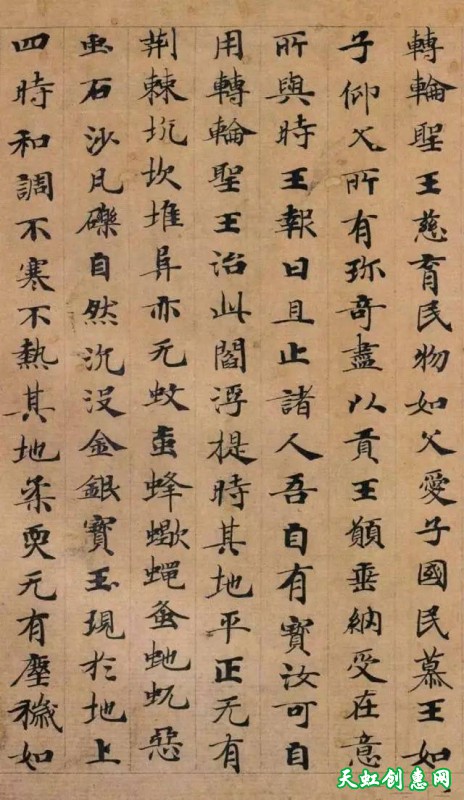 轉輪聖王慈育民物如父愛子國民慕王如
子仰父所有珎奇盡以貢王願垂納受在意
所與時王報曰且止諸人吾自有寶汝可自
用轉輪聖王治此閻浮提時其地平正无有
荆棘坑坎堆阜亦无蚊䖟蜂蠍蠅蚤虵蚖惡
虫石沙凡礫自然沉没金銀寶玉現於地上
四時和調不寒不熱其地柔耎无有塵穢如
天虹创惠网